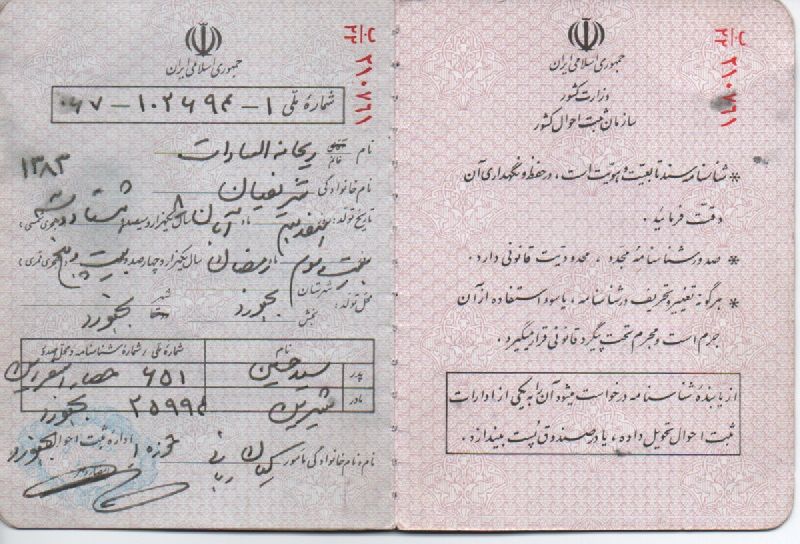 جمهوری اسلامی ایران
وزارت کشور
سازمان ثبت احوال کشور
* شناسنامه سند تابعیت و هویت است، در حفظ و نگهداری آن
دقت فرمائید.
* صدور شناسنامهٔ مجدد، محدودیت قانونی دارد.
* هرگونه تغییر و تحریف در شناسنامه، یا سوء استفاده از آن
جرم است و مجرم تحت پیگرد قانونی قرار میگیرد.
از یابندهٔ شناسنامه درخواست میشود آن را به یکی از ادارات
ثبت احوال تحویل داده، یا در صندوق پست بیندازد.
۲۱۰۷۶۱
جمهوری اسلامی ایران
۲۱۰۷۶۱
شماره ملی ۱ - ۱۰۲۶۹۴ - ۰۶۷
نام خانم ریحانه السادات
نام خانوادگی شریفیان
۱۳۸۳
تاریخ تولد: هفدهم ماه آبان سال یکهزار و سیصد و هشتاد و سه هجری شمسی
بیست و سوم ماه رمضان سال یکهزار و چهارصد و بیست و پنج (هجری قمری)
محل تولد: شهرستان بجنورد بخش شهر بجنورد
نام شماره ملی / شماره شناسنامه و محل صدور
پدر سید حسین ۶۵۱
مادر شیرین ۲۵۹۹۴ بجنورد
نام و نام خانوادگی مأمور حوزه ۱ اداره ثبت احوال بجنورد